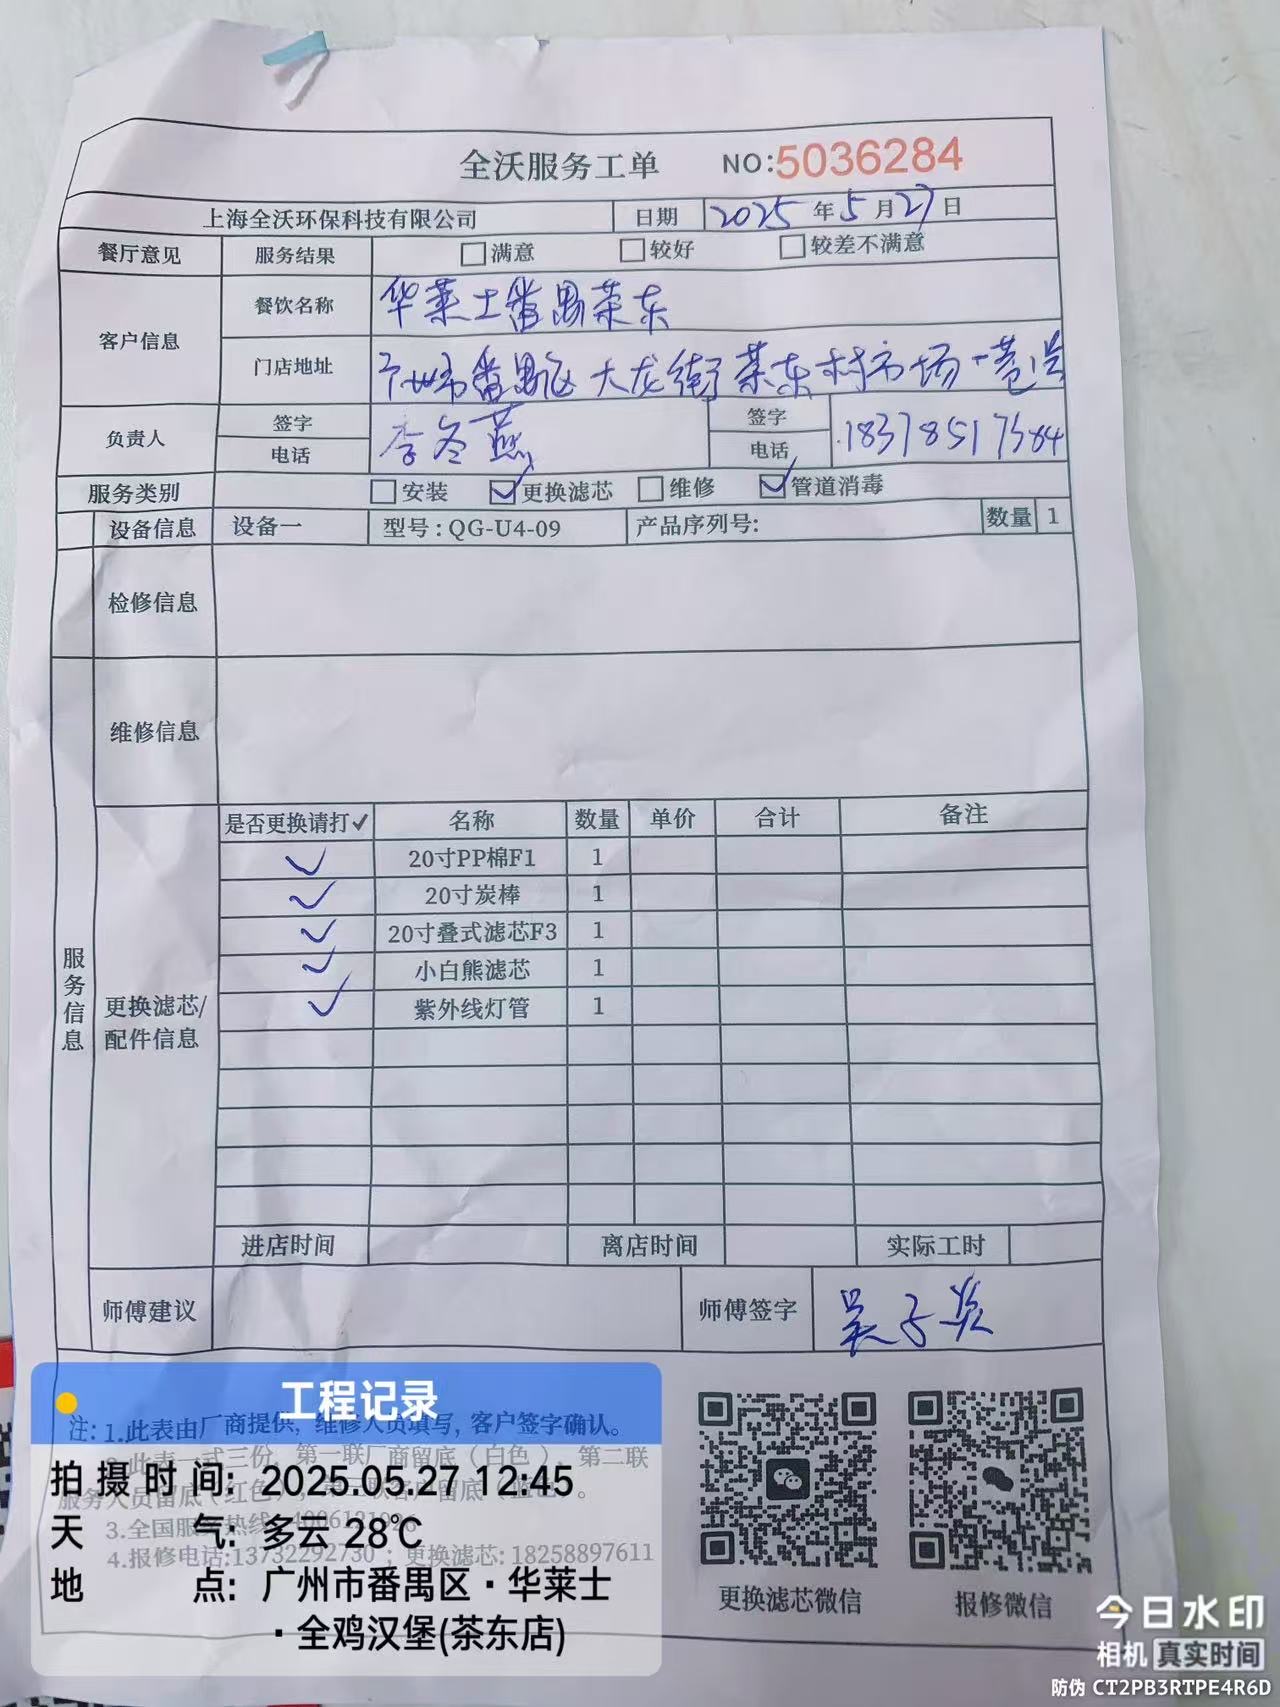 全沃服务工单 NO:5036284
上海全沃环保科技有限公司 日期 2025年5月27日
餐厅意见 服务结果 □满意 □较好 □较差不满意
客户信息 餐饮名称 华莱士番禺茶东
门店地址 广州市番禺区大龙街茶东村市场一巷
负责人 签字 李冬燕 签字
电话 电话 18378517384
服务类别 □安装 ☑更换滤芯 □维修 ☑管道消毒
设备信息 设备一 型号:QG-U4-09 产品序列号: 数量 1
检修信息
维修信息
服务信息
更换滤芯/配件信息
是否更换请打✓ 名称 数量 单价 合计 备注
✓ 20寸PP棉F1 1
✓ 20寸炭棒 1
✓ 20寸叠式滤芯F3 1
✓ 小白熊滤芯 1
✓ 紫外线灯管 1
进店时间 离店时间 实际工时
师傅建议 师傅签字 吴子
注:1.此表由厂商提供,维修人员填写,客户签字确认。
2.此表一式三份,第一联厂商留底(白色),第二联
服务人员留底(红色),
3.全国服务热线
4.报修电话:13732292730 ; 更换滤芯:18258897611
更换滤芯微信 报修微信
工程记录
拍摄时间: 2025.05.27 12:45
天气: 多云 28℃
地点: 广州市番禺区·华莱士
·全鸡汉堡(茶东店)
今日水印
相机 真实时间
防伪 CT2PB3RTPE4R6D